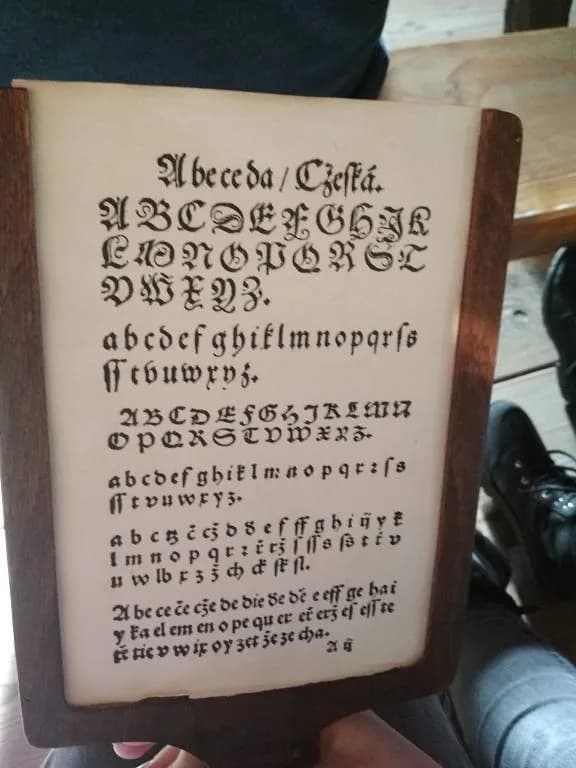 Abeceda / Cžeſká.
A B C D E F G H J K
L M N O P Q R S T
V W X Y Z.
a b c d e f g h i k l m n o p q r ſ s
ſſ t v u w x y z.
A B C D E F G H J K L M N
O P Q R S T V W X Y Z.
a b c d e f g h i k l m n o p q r ꝛ ſ s
ſſ t v u w x y z.
a b c tz č cž d ď e f ff g h i ÿ y k
l m n o p q r ꝛ ř rž ſ ſſ s ſs t ť v
u w lb x z ž ch ck ſk ſt.
A be ce če cže de die ďe dě e eff ge ha i
y ka el em en o pe qu er eř erž eſ eſſ te
ťe tie v w ix oy zet že že cha.
A ij